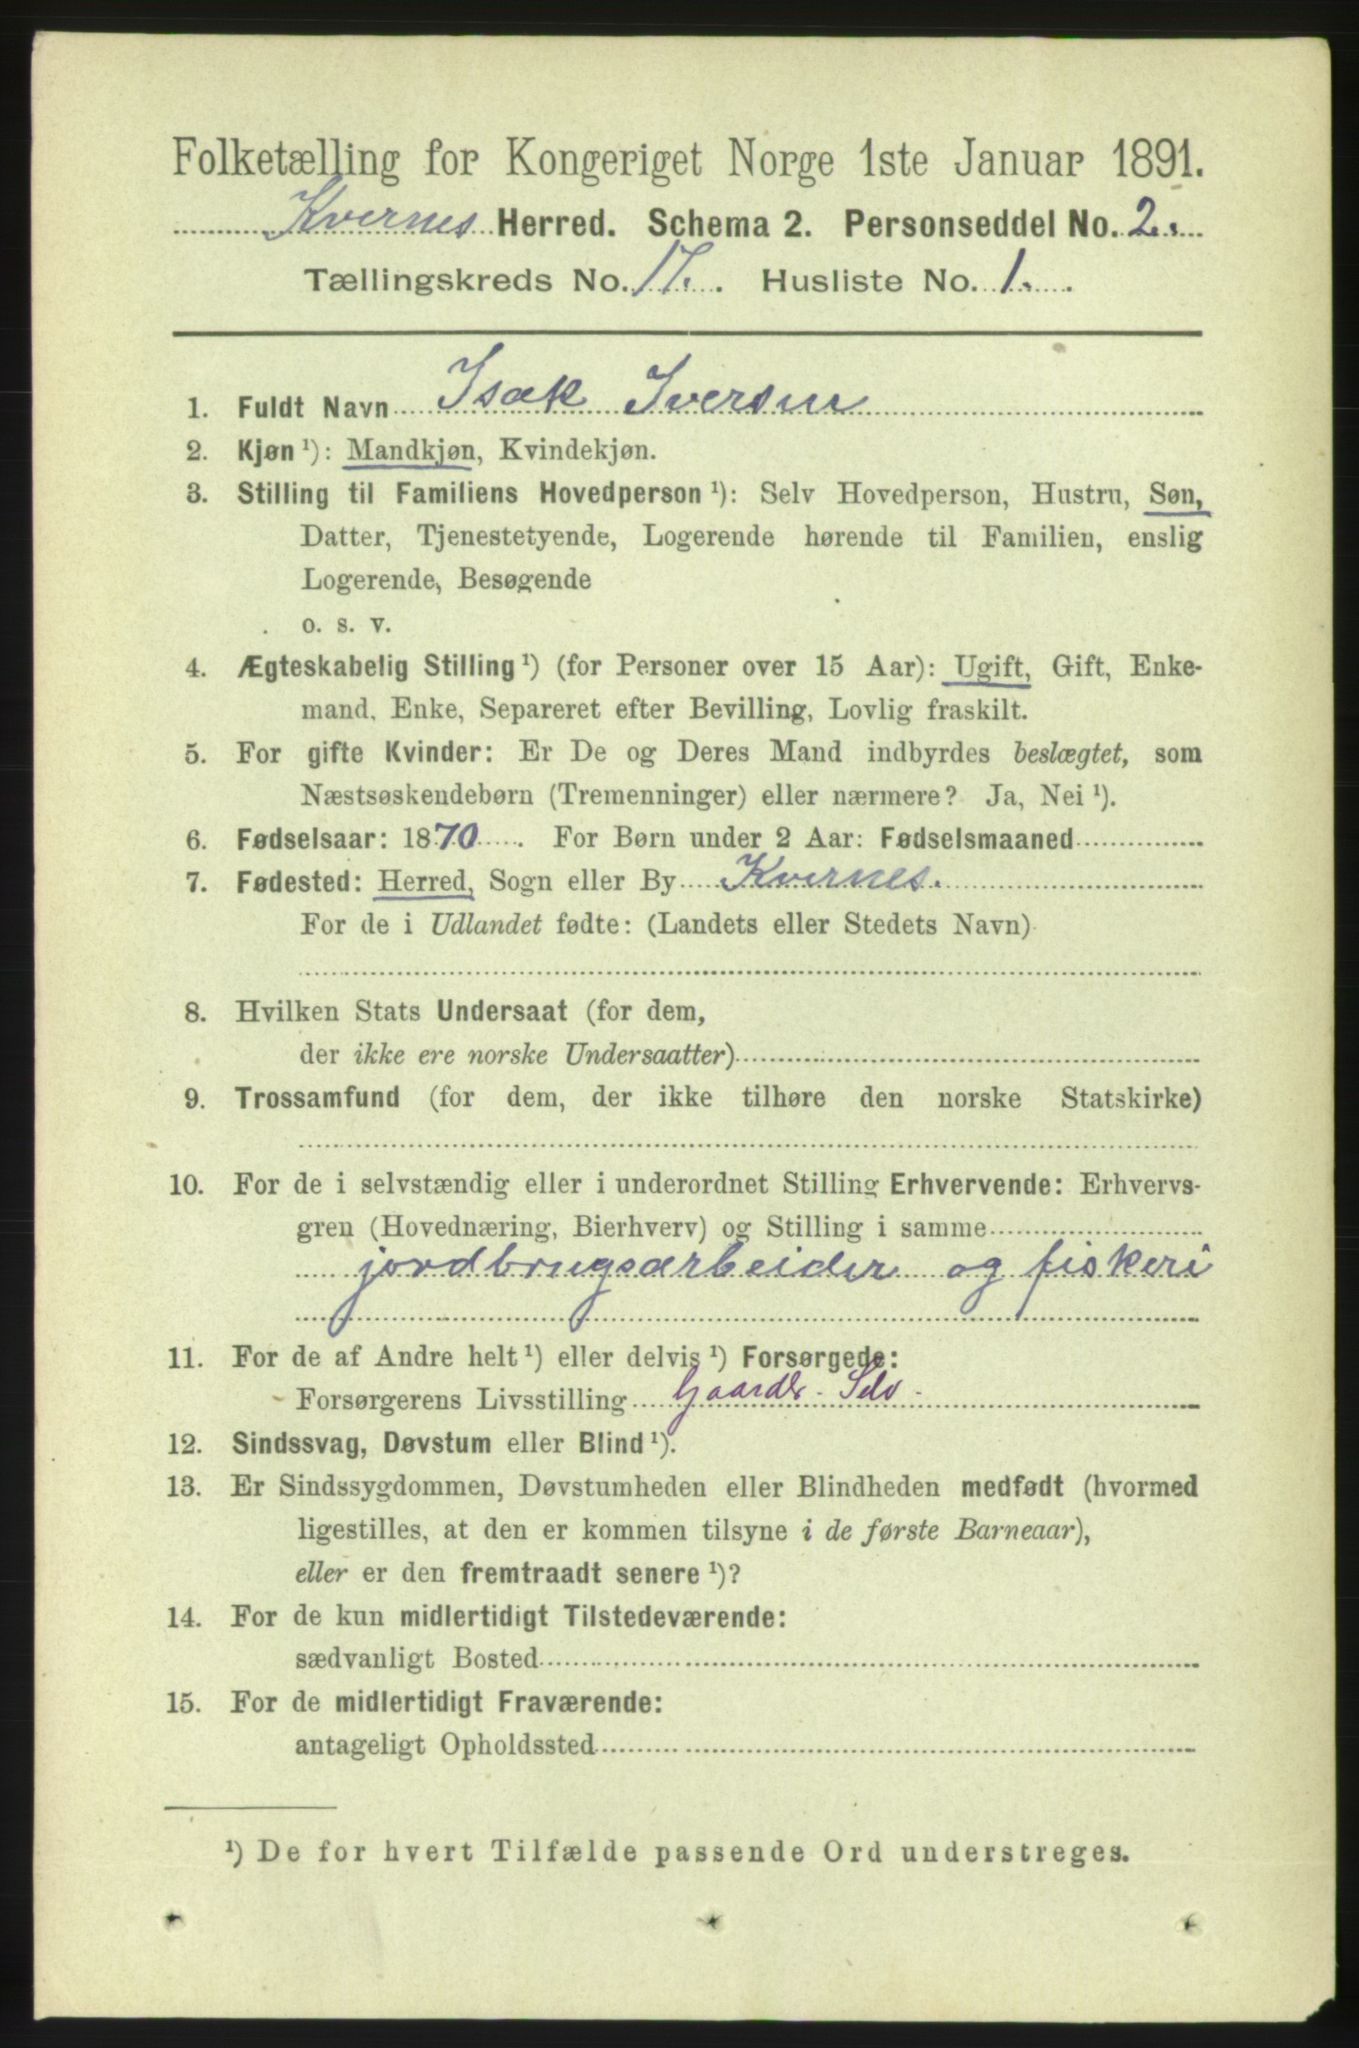 Folketælling for Kongeriget Norge 1ste Januar 1891.
Kvernes Herred. Schema 2. Personseddel No. 2.
Tællingskreds No. 17. Husliste No. 1.
1. Fuldt Navn Isak Iversen
2. Kjøn ¹): Mandkjøn, Kvindekjøn.
3. Stilling til Familiens Hovedperson ¹): Selv Hovedperson, Hustru, Søn,
Datter, Tjenestetyende, Logerende hørende til Familien, enslig
Logerende, Besøgende
o. s. v.
4. Ægteskabelig Stilling ¹) (for Personer over 15 Aar): Ugift, Gift, Enke-
mand, Enke, Separeret efter Bevilling, Lovlig fraskilt.
5. For gifte Kvinder: Er De og Deres Mand indbyrdes beslægtet, som
Næstsøskendebørn (Tremenninger) eller nærmere? Ja, Nei ¹).
6. Fødselsaar: 1870. For Børn under 2 Aar: Fødselsmaaned
7. Fødested: Herred, Sogn eller By Kvernes.
For de i Udlandet fødte: (Landets eller Stedets Navn)
8. Hvilken Stats Undersaat (for dem,
der ikke ere norske Undersaatter)
9. Trossamfund (for dem, der ikke tilhøre den norske Statskirke)
10. For de i selvstændig eller i underordnet Stilling Erhvervende: Erhvervs-
gren (Hovednæring, Bierhverv) og Stilling i samme
jordbrugsarbeider og fiskeri
11. For de af Andre helt ¹) eller delvis ¹) Forsørgede:
Forsørgerens Livsstilling Gaardbr. Selv.
12. Sindssvag, Døvstum eller Blind ¹).
13. Er Sindssygdommen, Døvstumheden eller Blindheden medfødt (hvormed
ligestilles, at den er kommen tilsyne i de første Barneaar),
eller er den fremtraadt senere ¹)?
14. For de kun midlertidigt Tilstedeværende:
sædvanligt Bosted
15. For de midlertidigt Fraværende:
antageligt Opholdssted
¹) De for hvert Tilfælde passende Ord understreges.